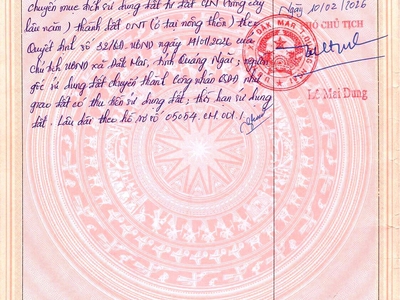 chuyển mục đích sử dụng đất từ đất CLN (trồng cây
lâu năm) thành đất ONT (ở tại nông thôn) theo
Quyết định số 32/QĐ.UBND ngày 14/01/2026 của
Chủ tịch UBND xã Đăk Mar, tỉnh Quảng Ngãi; nguồn
gốc sử dụng đất chuyển thành Công nhận QSDĐ như
giao đất có thu tiền sử dụng đất; thời hạn sử dụng
đất. Lâu dài theo hồ sơ số 05054.CH.001./.
Ngày 10/02/2026
PHÓ CHỦ TỊCH
Lê Mai Dung